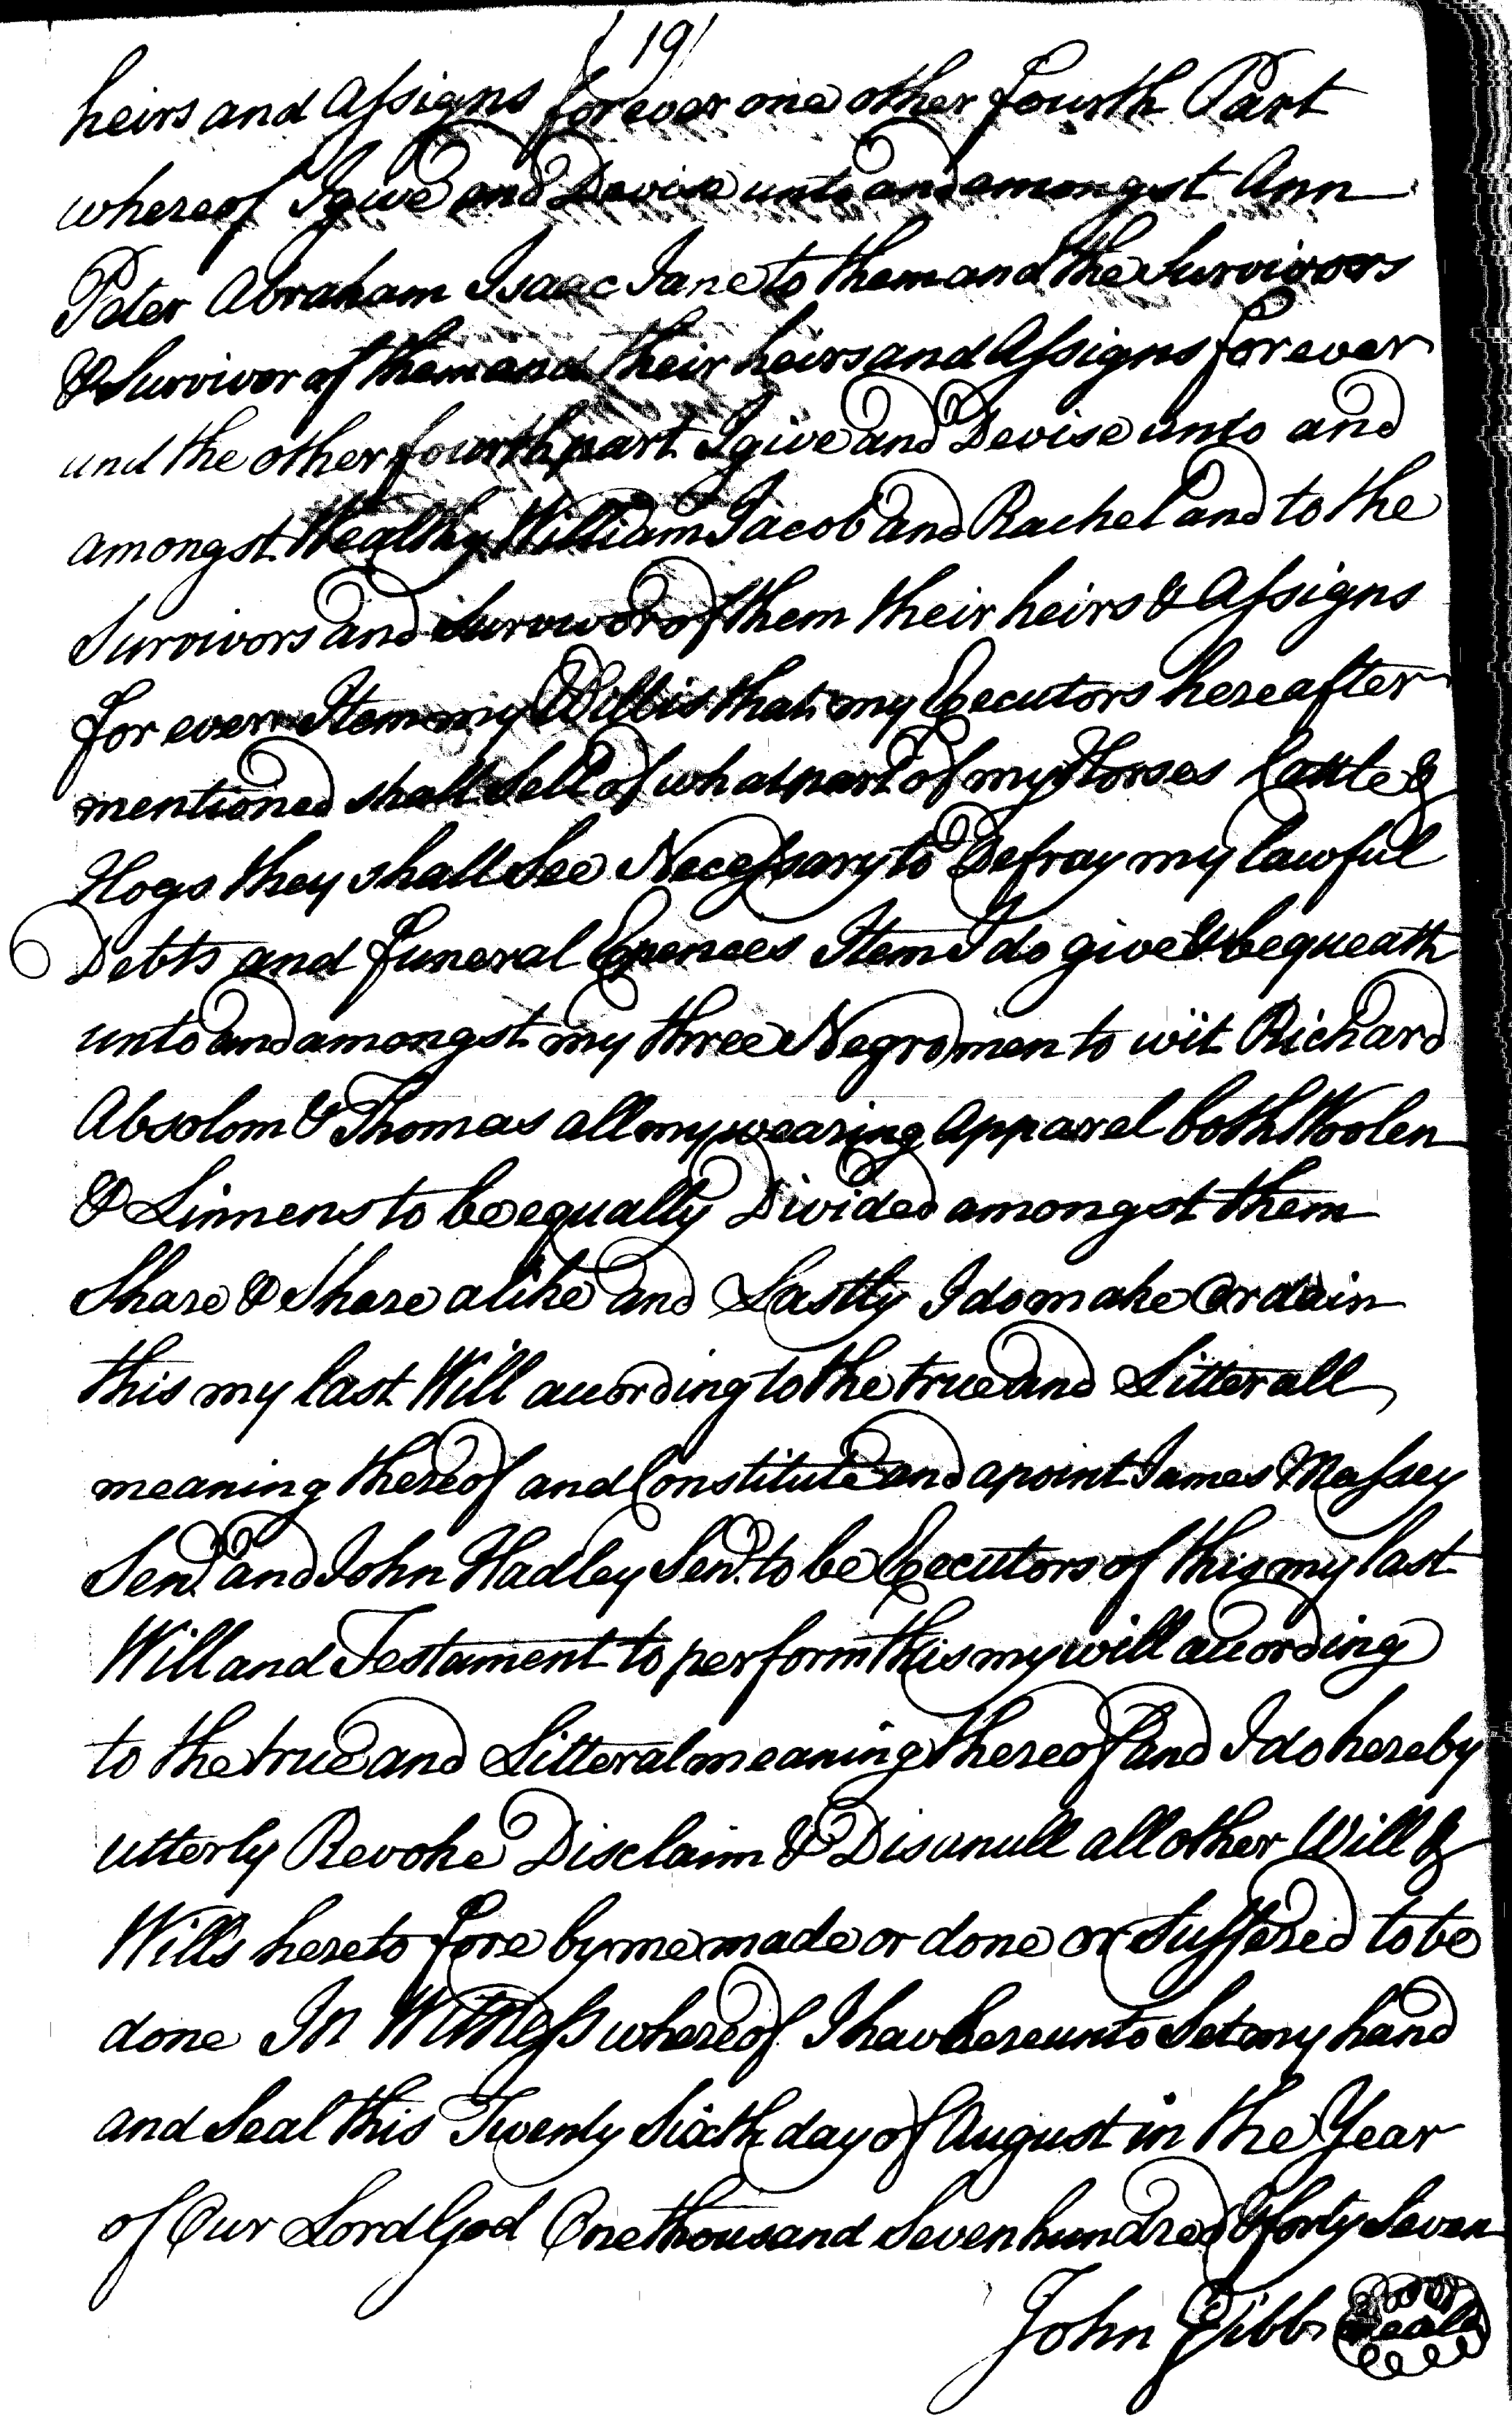 (19)
heirs and Assigns forever one other fourth Part
whereof I give and Devise unto and amongst Ann
Peter Abraham Isaac Jane to them and the Survivors
& Survivor of them and their heirs and Assigns forever
and the other fourth part I give and Devise unto and
amongst Wealthy William Jacob and Rachel and to the
Survivors and Survivor of them their heirs & Assigns
for ever Item my Will is that my Executors hereafter
mentioned shall sell of what part of my Horses Cattle &
Hogs they shall See Necessary to Defray my lawful
Debts and funeral Expences Item I do give & bequeath
unto and amongst my three Negro men to wit Richard
Absolom & Thomas all my wearing Apparel both Woolen
& Linnens to be equally Divided amongst them
Share & Share alike and Lastly I do make Ordain
this my last Will according to the true and Litterall
meaning thereof and Constitute and apoint James Massey
Senr. and John Hadley Senr. to be Executors of this my last
Will and Testament to perform this my will according
to the true and Litteral meaning thereof and I do hereby
utterly Revoke Disclaim & Disanull all other Will &
Wills hereto fore by me made or done or Suffered to be
done In Witness whereof I have hereunto Set my hand
and Seal this Twenty Sixth day of August in the Year
of Our Lord God One thousand Seven hundred & forty Seven
John Gibbs Seal